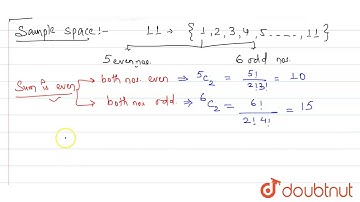 Sample space :- 11 → { 1, 2, 3, 4, 5 ....., 11 }
5 even nos. 6 odd nos.
Sum is even → both nos. even ⇒ ⁵C₂ = 5! / 2! 3! = 10
→ both nos. odd ⇒ ⁶C₂ = 6! / 2! 4! = 15
doubtnut